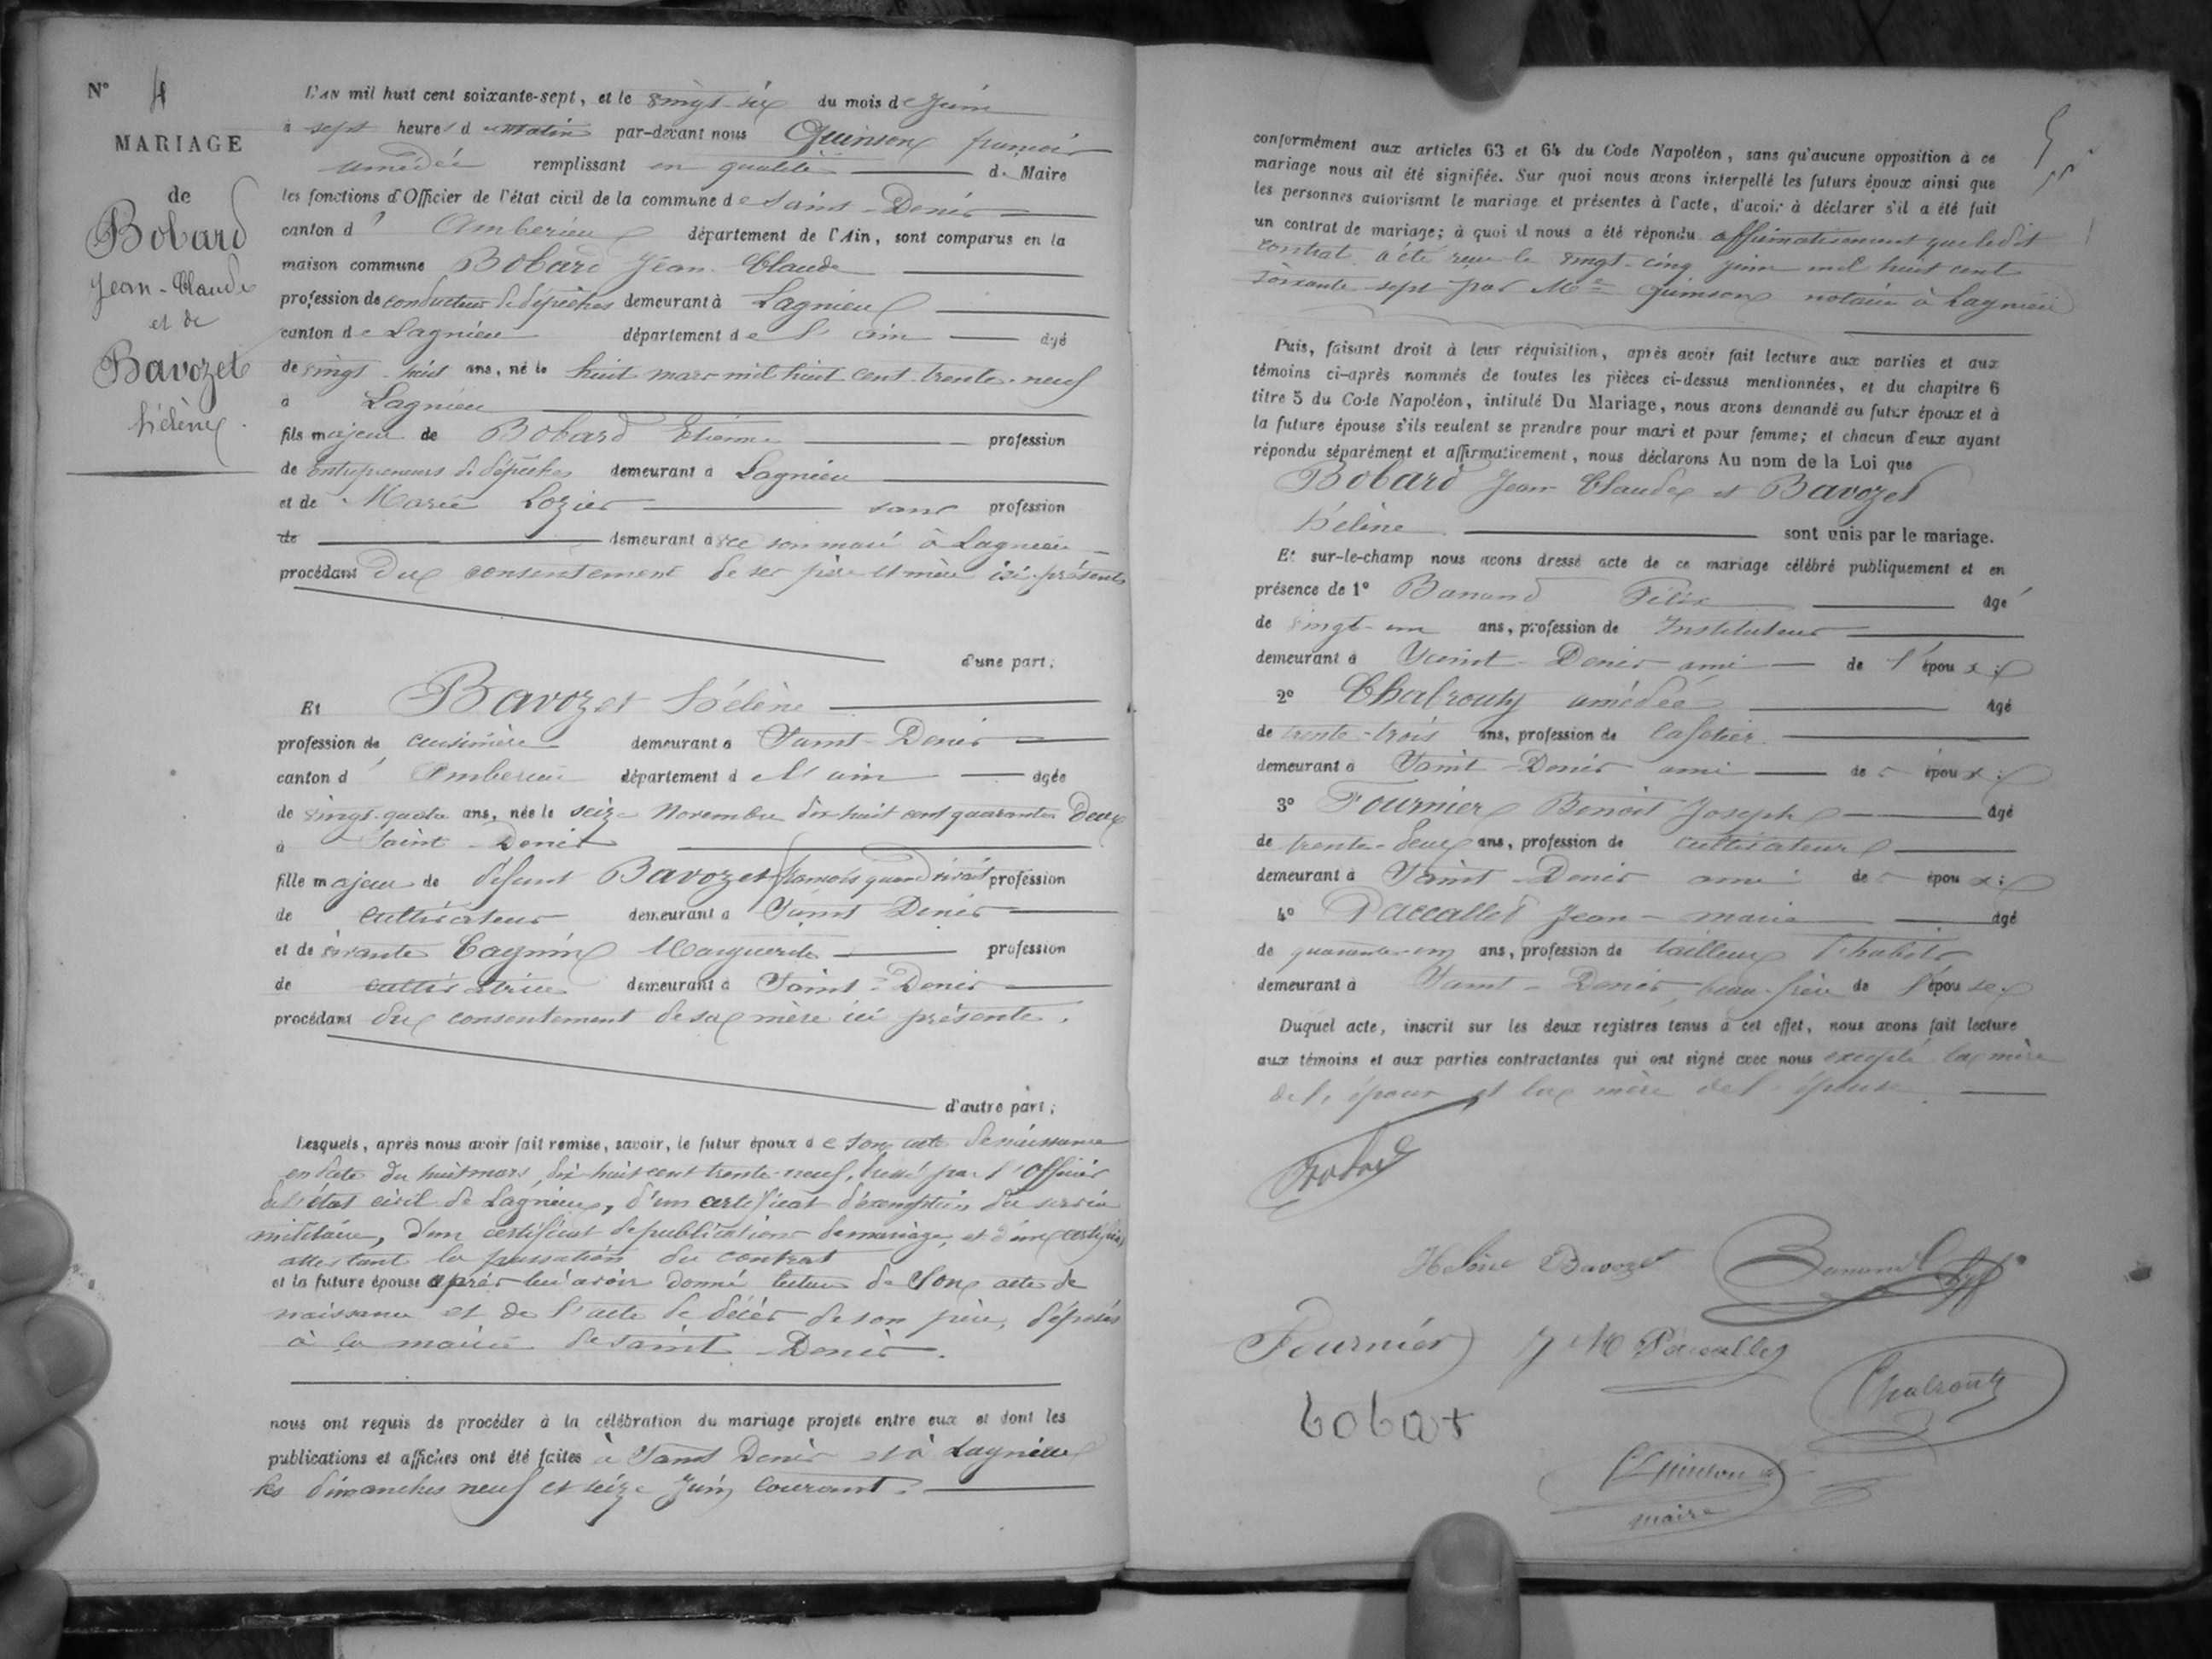 N° 4
MARIAGE
de
Bobard
Jean-Claude
et de
Bavozet
hélène
L'AN mil huit cent soixante-sept, et le vingt six du mois de Juin
à sept heures d matin par-devant nous Quinson françois
amédée remplissant en qualité de Maire
les fonctions d'Officier de l'état civil de la commune de Saint-Denis
canton d' Ambérieu département de l'Ain, sont comparus en la
maison commune Bobard Jean-Claude
profession de conducteur de dépèches demeurant à Lagnieu
canton de Lagnieu département de l'ain âgé
de vingt-huit ans, né le huit mars mil huit cent trente-neuf
à Lagnieu
fils majeur de Bobard Etienne profession
de Entrepreneur de dépèches demeurant à Lagnieu
et de Marie Lozier sans profession
de demeurant avec son mari à Lagnieu
procédant du consentement de ses père et mère ici présents
d'une part;
Et Bavozet hélène
profession de cuisinière demeurant à Saint-Denis
canton d' Ambérieu département de l'ain âgée
de vingt-quatre ans, née le seize Novembre dix huit cent quarante Deux
à Saint-Denis
fille majeure de défunt Bavozet françois quand vivait profession
de cultivateur demeurant à Saint Denis
et de vivante Cagnin Marguerite profession
de cultivatrice demeurant à Saint-Denis
procédant du consentement de sa mère ici présente.
d'autre part;
Lesquels, après nous avoir fait remise, savoir, le futur époux de son acte de naissance
en date du huit mars dix huit cent trente-neuf, dressé par l'Officier
de l'état civil de Lagnieu, d'un certificat d'exemption du service
militaire, d'un certificat de publications de mariage, et d'un certificat
attestant la passation du contrat
et la future épouse après lui avoir donné lecture de son acte de
naissance et de l'acte de décès de son père, déposés
à la mairie de saint-Denis.
nous ont requis de procéder à la célébration du mariage projeté entre eux et dont les
publications et affiches ont été faites à Saint Denis et à Lagnieu
les dimanches neuf et seize Juin courant.
conformément aux articles 63 et 64 du Code Napoléon, sans qu'aucune opposition à ce
mariage nous ait été signifiée. Sur quoi nous avons interpellé les futurs époux ainsi que
les personnes autorisant le mariage et présentes à l'acte, d'avoir à déclarer s'il a été fait
un contrat de mariage; à quoi il nous a été répondu affirmativement que ledit
contrat a été reçu le vingt-cinq juin mil huit cent
soixante sept par Me quinson notaire à Lagnieu
Puis, faisant droit à leur réquisition, après avoir fait lecture aux parties et aux
témoins ci-après nommés de toutes les pièces ci-dessus mentionnées, et du chapitre 6
titre 5 du Code Napoléon, intitulé Du Mariage, nous avons demandé au futur époux et à
la future épouse s'ils veulent se prendre pour mari et pour femme; et chacun d'eux ayant
répondu séparément et affirmativement, nous déclarons Au nom de la Loi que
Bobard Jean Claude et Bavozet
hélène sont unis par le mariage.
Et sur-le-champ nous avons dressé acte de ce mariage célébré publiquement et en
présence de 1° Banand Félix âgé
de vingt-un ans, profession de Instituteur
demeurant à Saint-Denis ami de l'époux;
2° Chalrouty amédée âgé
de trente-trois ans, profession de Cafetier
demeurant à Saint-Denis ami de époux;
3° Fournier Benoit Joseph âgé
de trente-deux ans, profession de cultivateur
demeurant à Saint-Denis ami de époux;
4° Paccallet Jean-marie âgé
de quarante-un ans, profession de tailleur d'habits
demeurant à Saint-Denis, beau-frère de l'épouse
Duquel acte, inscrit sur les deux registres tenus à cet effet, nous avons fait lecture
aux témoins et aux parties contractantes qui ont signé avec nous excepté la mère
de l'époux et la mère de l'épouse.
Bobard
Helène Bavozet Banand
Fournier J M Pacallet
Chalrouty
bobar
Quinson
maire